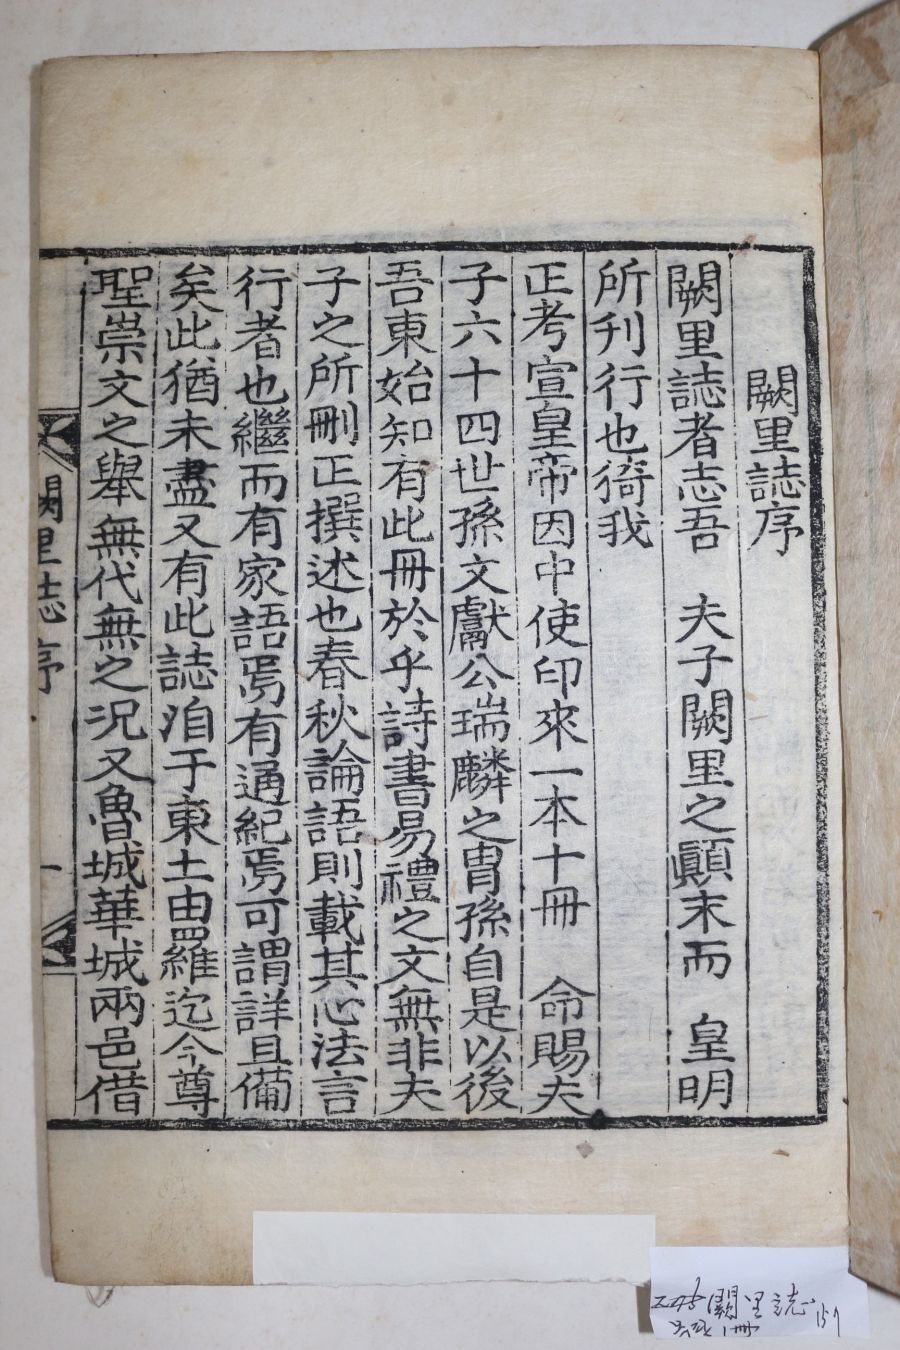 闕里誌序
闕里誌者志吾 夫子闕里之顚末而 皇明
所刊行也猗我
正考宣皇帝因中使印來一本十冊 命賜夫
子六十四世孫文獻公瑞麟之胄孫自是以後
吾東始知有此冊於乎詩書易禮之文無非夫
子之所刪正撰述也春秋論語則載其心法言
行者也繼而有家語焉有通紀焉可謂詳且備
矣此猶未盡又有此誌洎于東土由羅維迄今尊
聖崇文之擧無代無之况又魯城華城兩邑借
闕里誌序
一
闕里誌